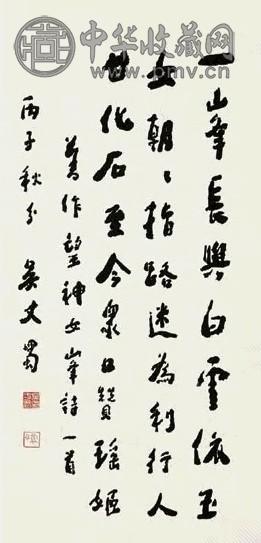 中华收藏网
www.pmv.cn
一峯長與白雲依玉
女朝々指路迷為利行人
甘化石至今衆口贊瑤姬
舊作望神女峯詩一首
丙子秋分 吳丈蜀